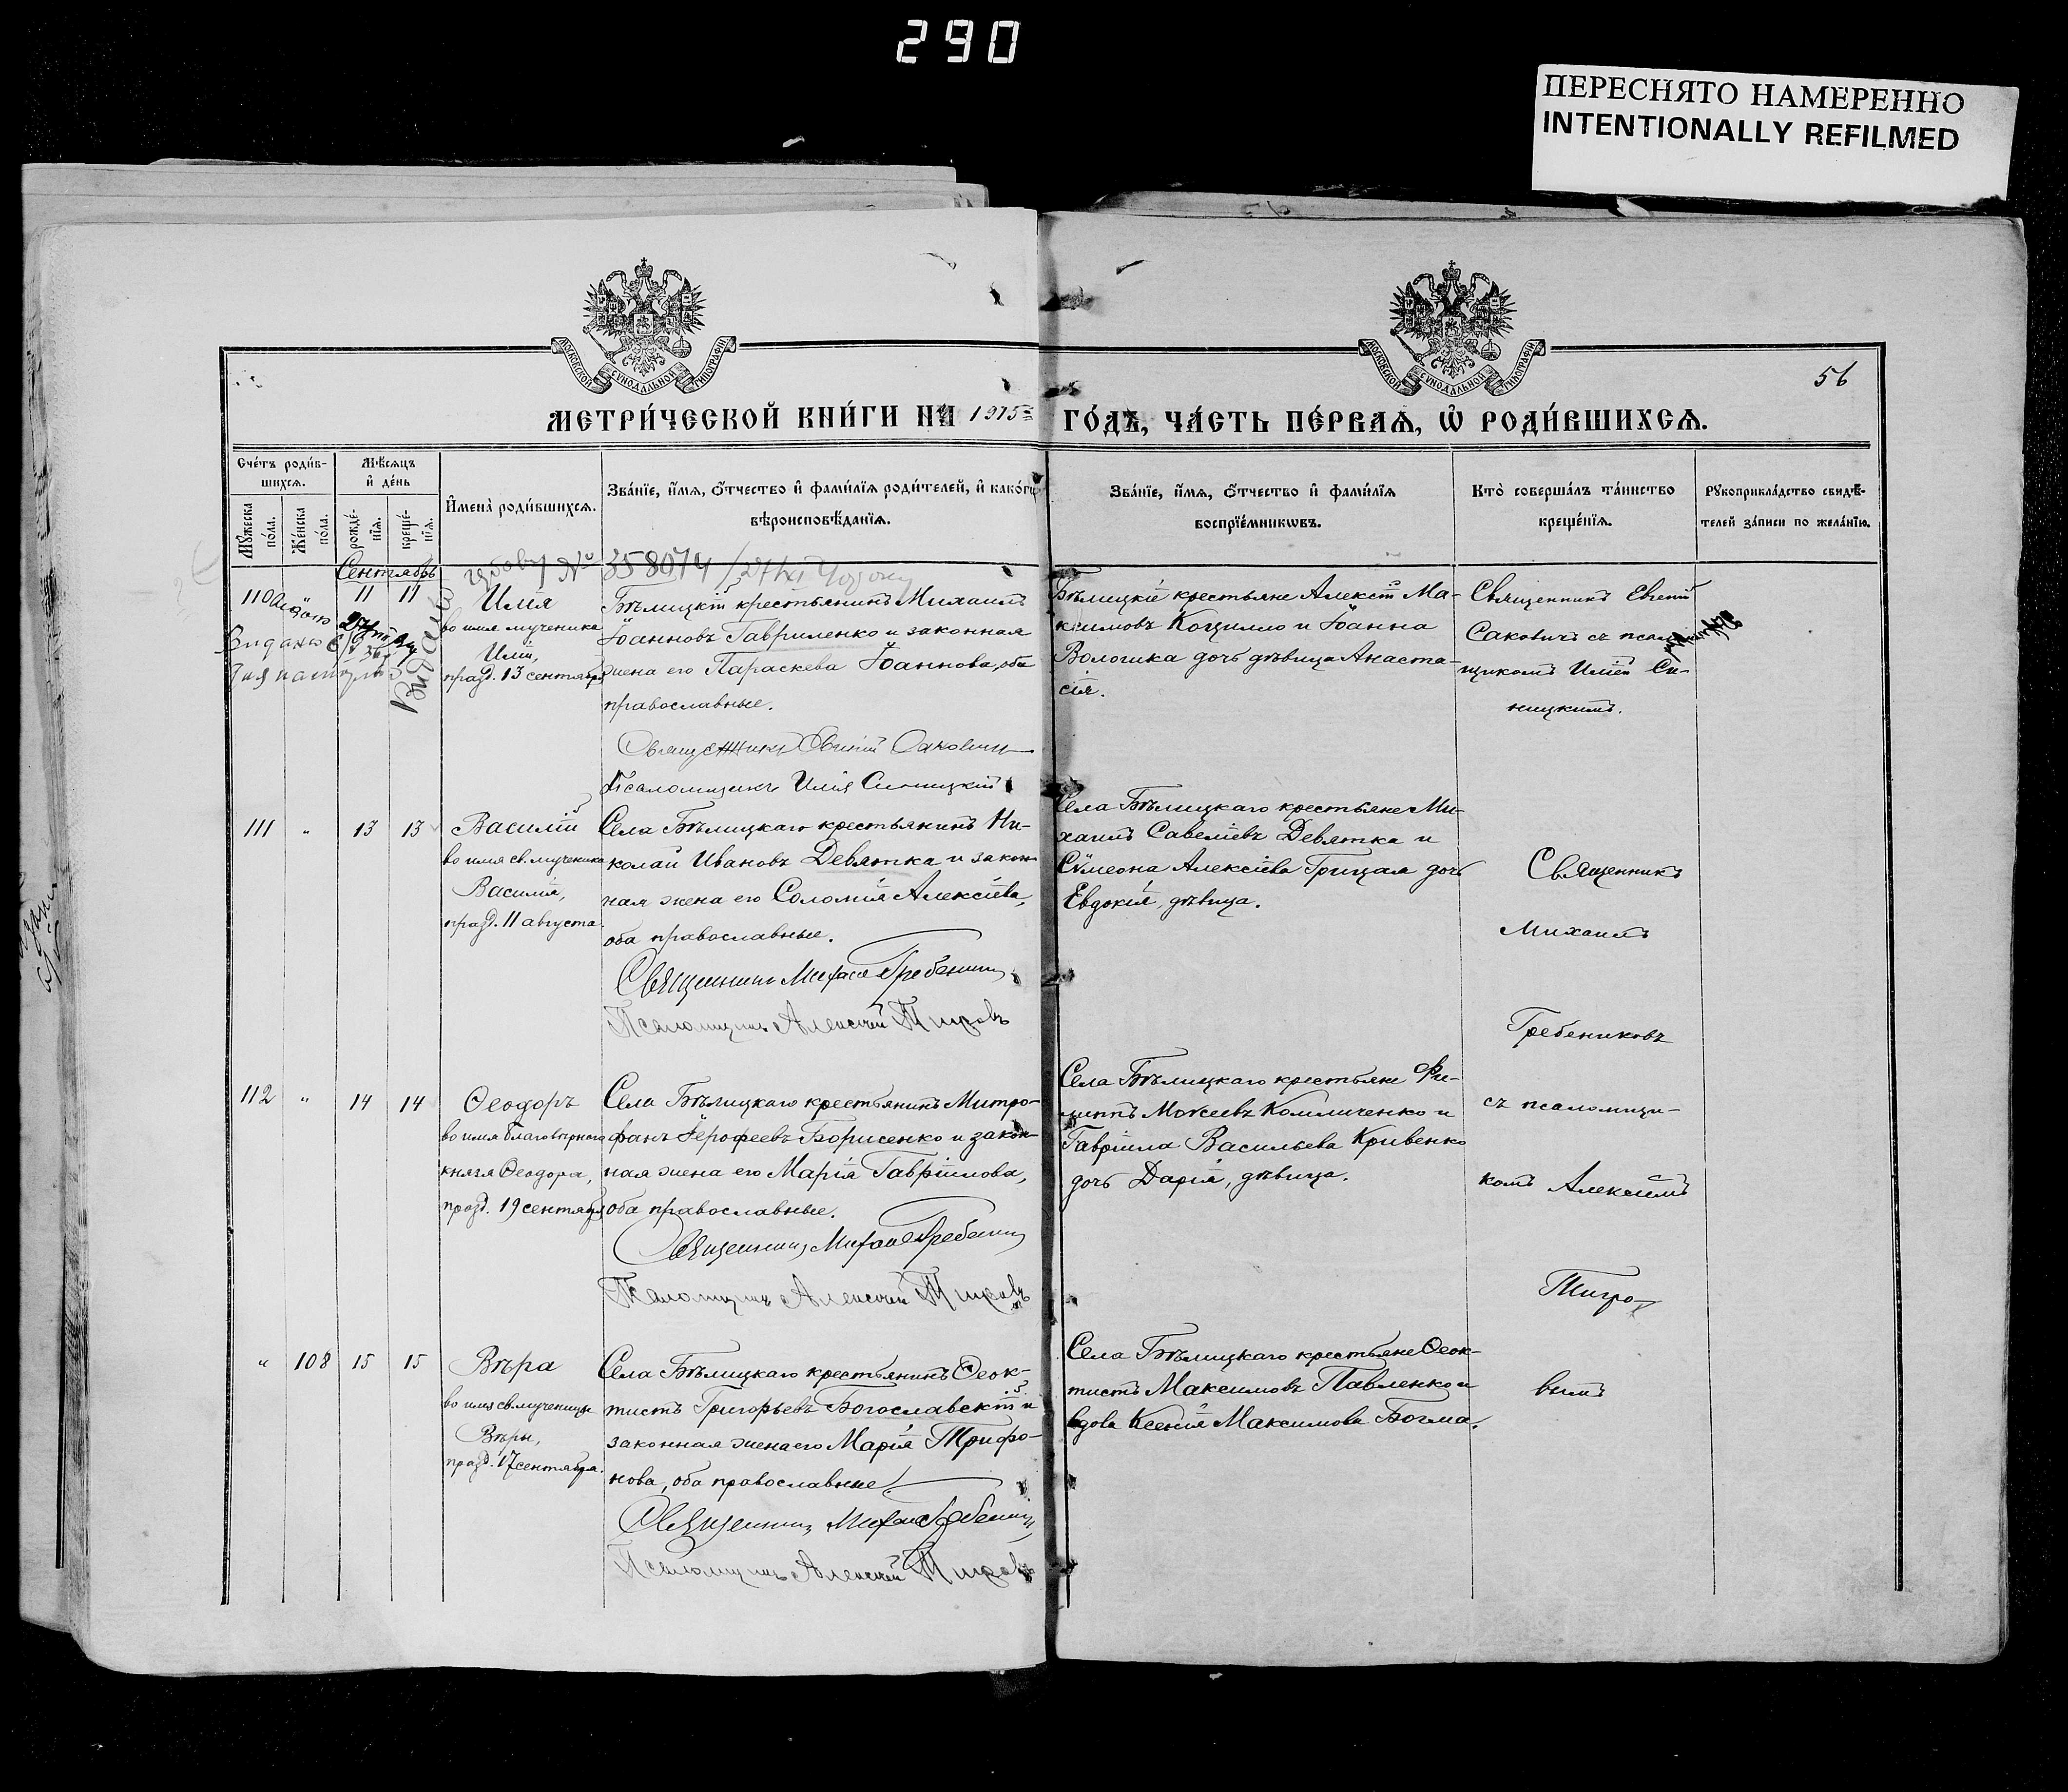 290
ПЕРЕСНЯТО НАМЕРЕННО
INTENTIONALLY REFILMED
МОСКОВСКОЙ СУНОДАЛЬНОЙ ТИПОГРАФІИ
МОСКОВСКОЙ СУНОДАЛЬНОЙ ТИПОГРАФІИ
56
МЕТРИ́ЧЕСКОЙ КНИ́ГИ НА 1915 ГО́ДЪ, ЧА́СТЬ ПЕ́РВАѦ, Ѡ РОДИ́ВШИХСѦ.
Сче́тъ роди́вшихсѧ.
Мꙋ́жеска по́ла.
Же́нска по́ла.
Мѣ́сѧцъ и де́нь
рожде́нїѧ.
креще́нїѧ.
Имена̀ роди́вшихсѧ.
Зва́нїе, и́мѧ, ѻ́тчество и фами́лїѧ роди́телей, и како́гѡ
вѣроисповѣ́данїѧ.
Зва́нїе, и́мѧ, ѻ́тчество и фами́лїѧ
воспрїе́мникѡвъ.
Кто̀ соверша́лъ та́инство
креще́нїѧ.
Рꙋкоприкла́дство свидѣ́-
телей за́писи по жела́нїю.
Сентябрь
№ 358074
110
11 11
Илія
во имя мученика
Иліи,
празд. 13 сентября
Бѣлицкій крестьянинъ Михаилъ
Іоанновъ Гавриленко и законная
жена его Параскева Іоаннова, оба
православные.
Священникъ Евгеній Саковичъ
Псаломщикъ Илія Синицкій
Бѣлицкіе крестьяне Алексій Ма-
ксимовъ Коцилло и Іоанна
Вологика дочь дѣвица Анаста-
сія.
Священникъ Евгеній
Саковичъ съ псалом-
щикомъ Иліей Си-
ницкимъ.
111 „ 13 13
Василій
во имя св. мученика
Василія,
празд. 11 августа.
Села Бѣлицкаго крестьянинъ Ни-
колай Ивановъ Девятка и закон-
ная жена его Соломія Алексіева,
оба православные.
Священникъ Михаил Гребеник
Псаломщикъ Алексей Тигровъ
Села Бѣлицкаго крестьяне Ми-
хаилъ Савеліевъ Девятка и
Сѵмеона Алексіева Грицая дочь
Евдокія, дѣвица.
Священникъ
Михаилъ
Гребениковъ
112 „ 14 14
Ѳеодоръ
во имя благовѣрнаго
князя Ѳеодора,
празд. 19 сентября
Села Бѣлицкаго крестьянинъ Митро-
фанъ Іерофеевъ Борисенко и закон-
ная жена его Марія Гавріилова,
оба православные.
Священникъ Михаил Гребеник
Псаломщикъ Алексей Тигровъ
Села Бѣлицкаго крестьяне Фи-
липпъ Моѵсеевъ Компиченко и
Гавріила Васильева Кривенко
дочь Дарія, дѣвица.
съ псаломщи-
комъ Алексіемъ
Тигро-
„ 108 15 15
Вѣра
во имя св. мученицы
Вѣры,
празд. 17 сентября.
Села Бѣлицкаго крестьянинъ Ѳеок-
тистъ Григорьевъ Богославскій и
законная жена его Марія Трифо-
нова, оба православные.
Священникъ Михаил Гребеник
Псаломщикъ Алексей Тигровъ
Села Бѣлицкаго крестьяне Ѳеок-
тистъ Максимовъ Павленко и
вдова Ксенія Максимова Богма.
вымъ